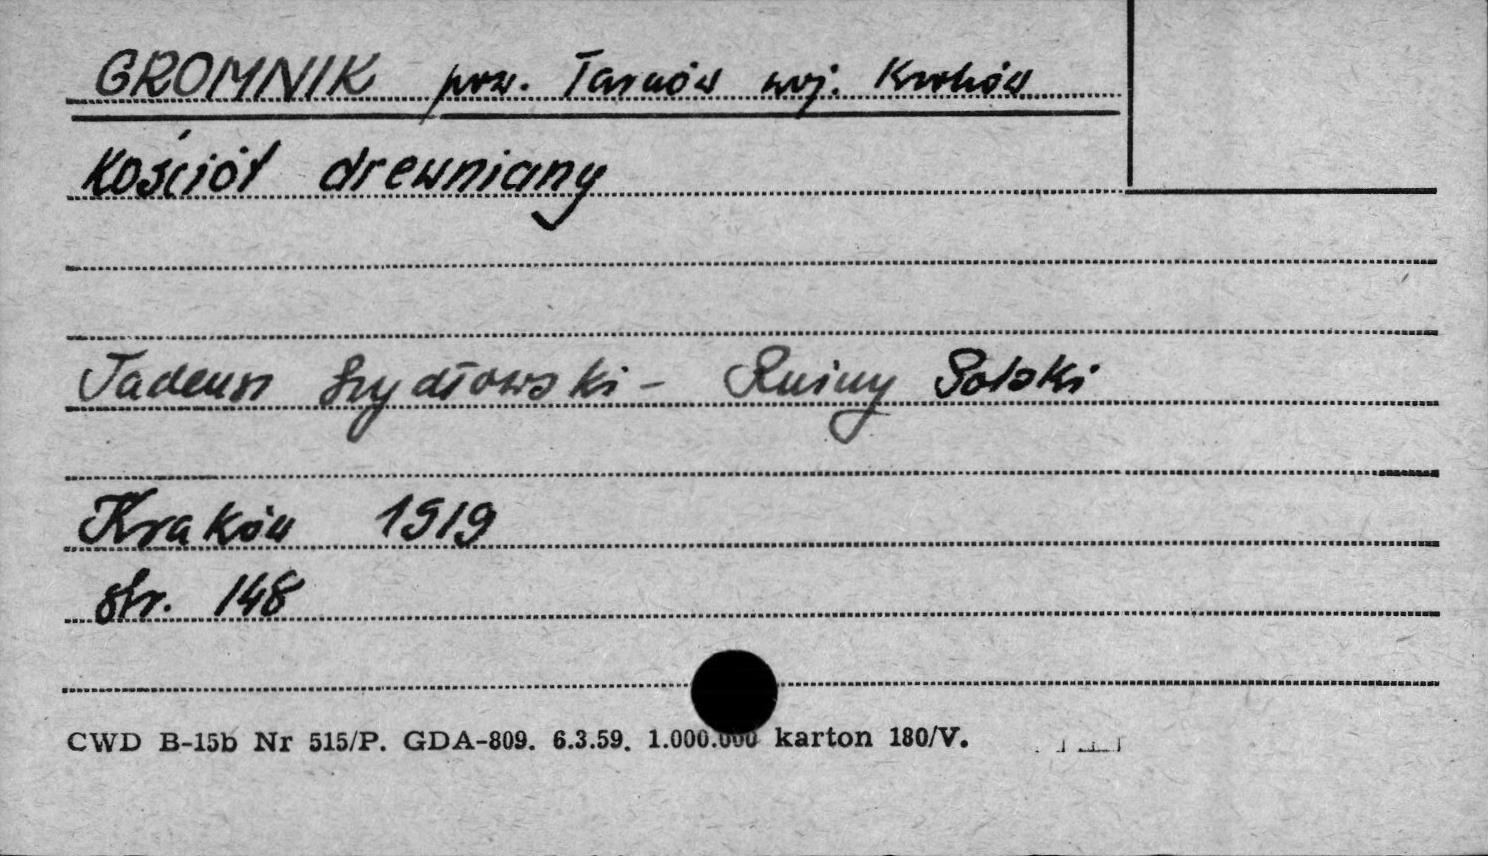 GROMNIK pow. Tarnów woj. Kraków
Kościół drewniany
Tadeusz Szydłowski - Ruiny Polski
Kraków 1919
str. 148
CWD B-15b Nr 515/P. GDA-809. 6.3.59. 1.000.000 karton 180/V.